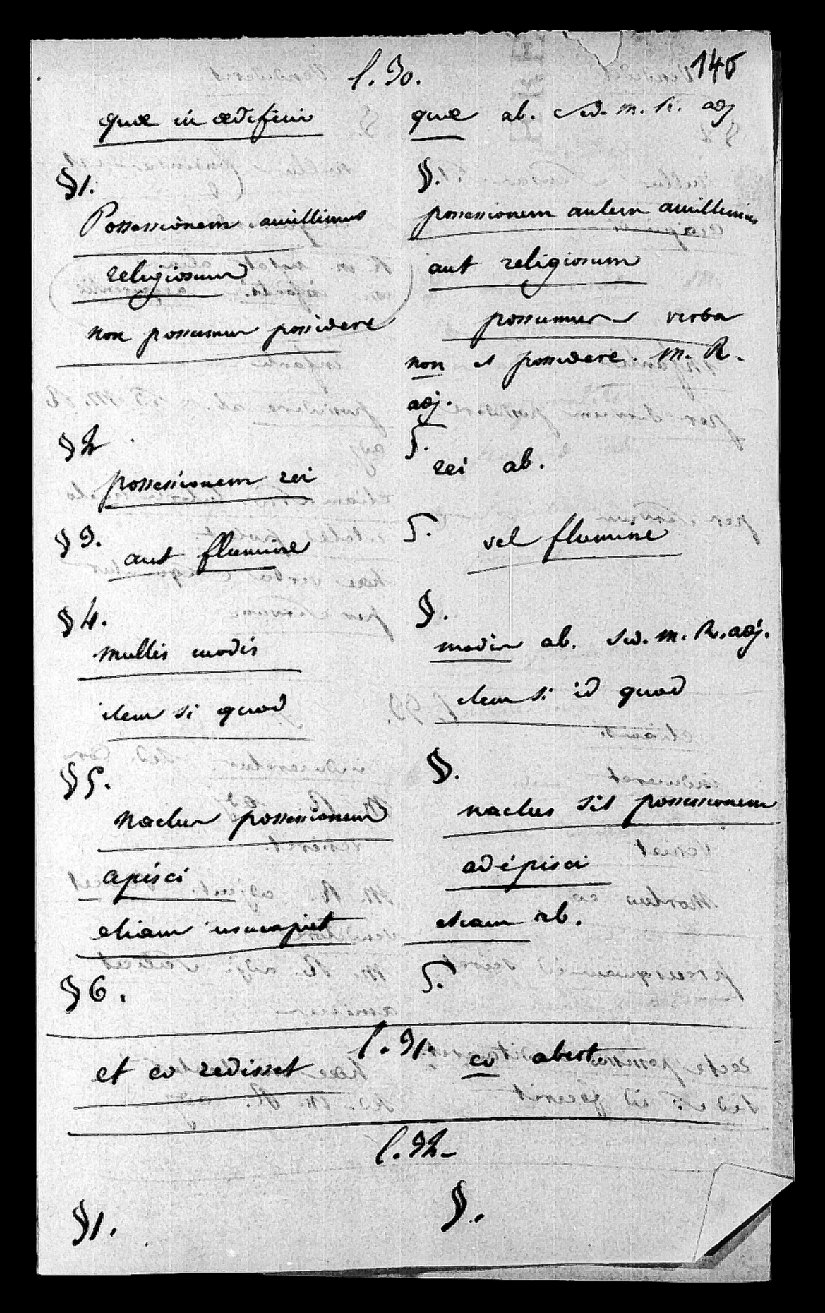 146
l. 30.
quæ in ædificiis
quæ ab. sed. m. R. adj
§1.
§.
Possessionem amittimus
possessionem autem amittimus
religiosum
aut religiosum
non possumus possidere
possumus verba
non et possidere. m. R.
adj.
§2
§.
possessionem rei
rei ab.
§3.
§.
aut flumine
vel flumine
§4.
§.
multis modis
modis ab. sed. m. R. adj.
item si quod
item si id quod
§5.
§.
nactus possessionem
nactus sit possessionem
apisci
adipisci
etiam usucapiet
etiam ab.
§6.
§.
l. 31.
et eo redisset
eo abest
l. 32.
§1.
§.